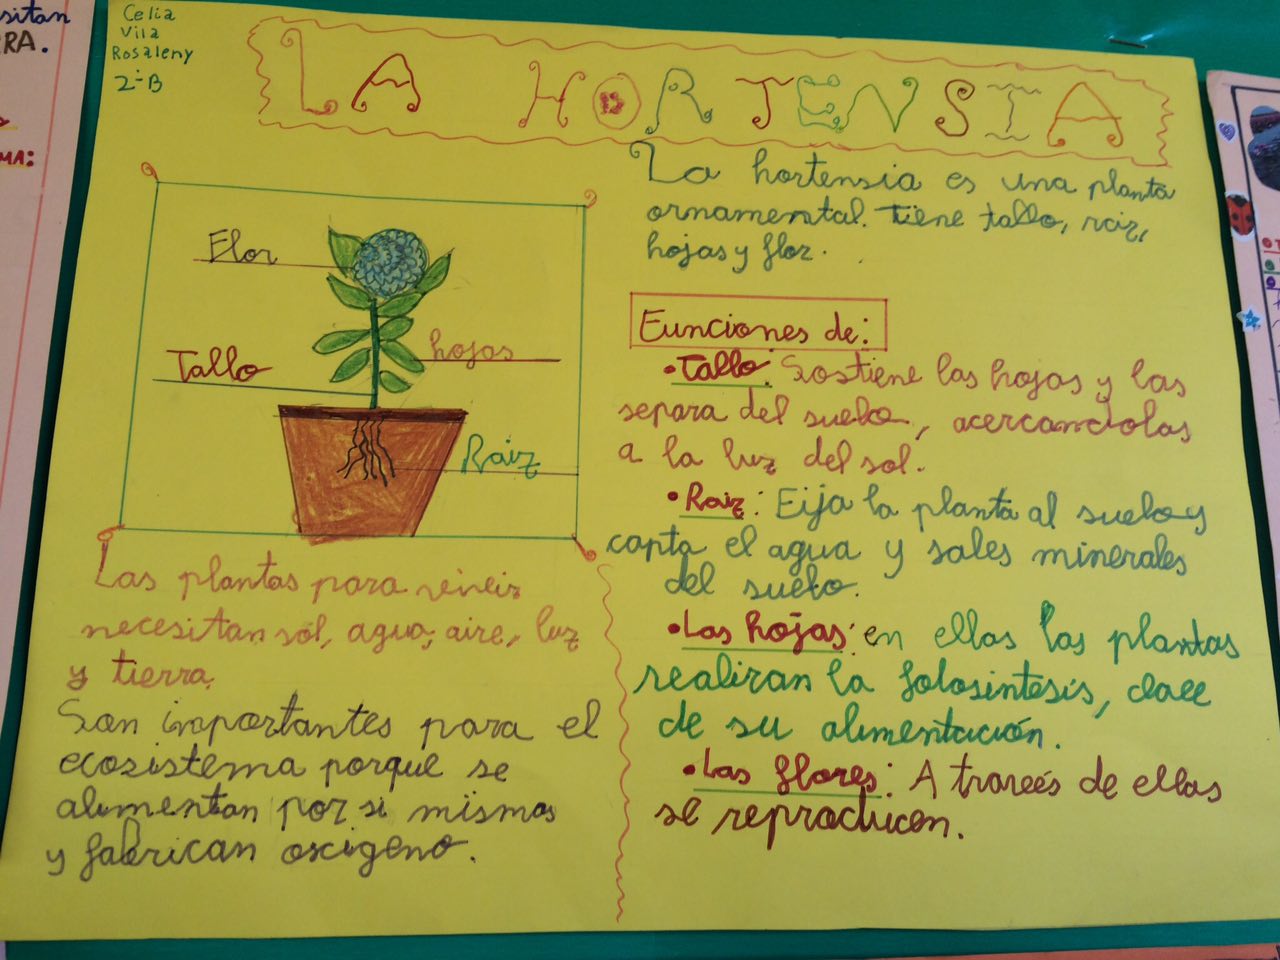 sitan
RA.
MA:
Celia
Vila
Rosaleny
2ºB
LA HORTENSIA
La hortensia es una planta
ornamental. Tiene tallo, raiz,
hojas y flor.
Flor
Tallo
hojas
Raiz
Las plantas para vivir
necesitan sol, agua, aire, luz
y tierra.
Son importantes para el
ecosistema porque se
alimentan por si mismas
y fabrican oxigeno.
Funciones de:
•Tallo: Sostiene las hojas y las
separa del suelo, acercandolas
a la luz del sol.
•Raiz: Fija la planta al suelo y
capta el agua y sales minerales
del suelo.
•Las hojas: en ellas las plantas
realizan la fotosintesis, clave
de su alimentación.
•Las flores: A través de ellas
se reproducen.